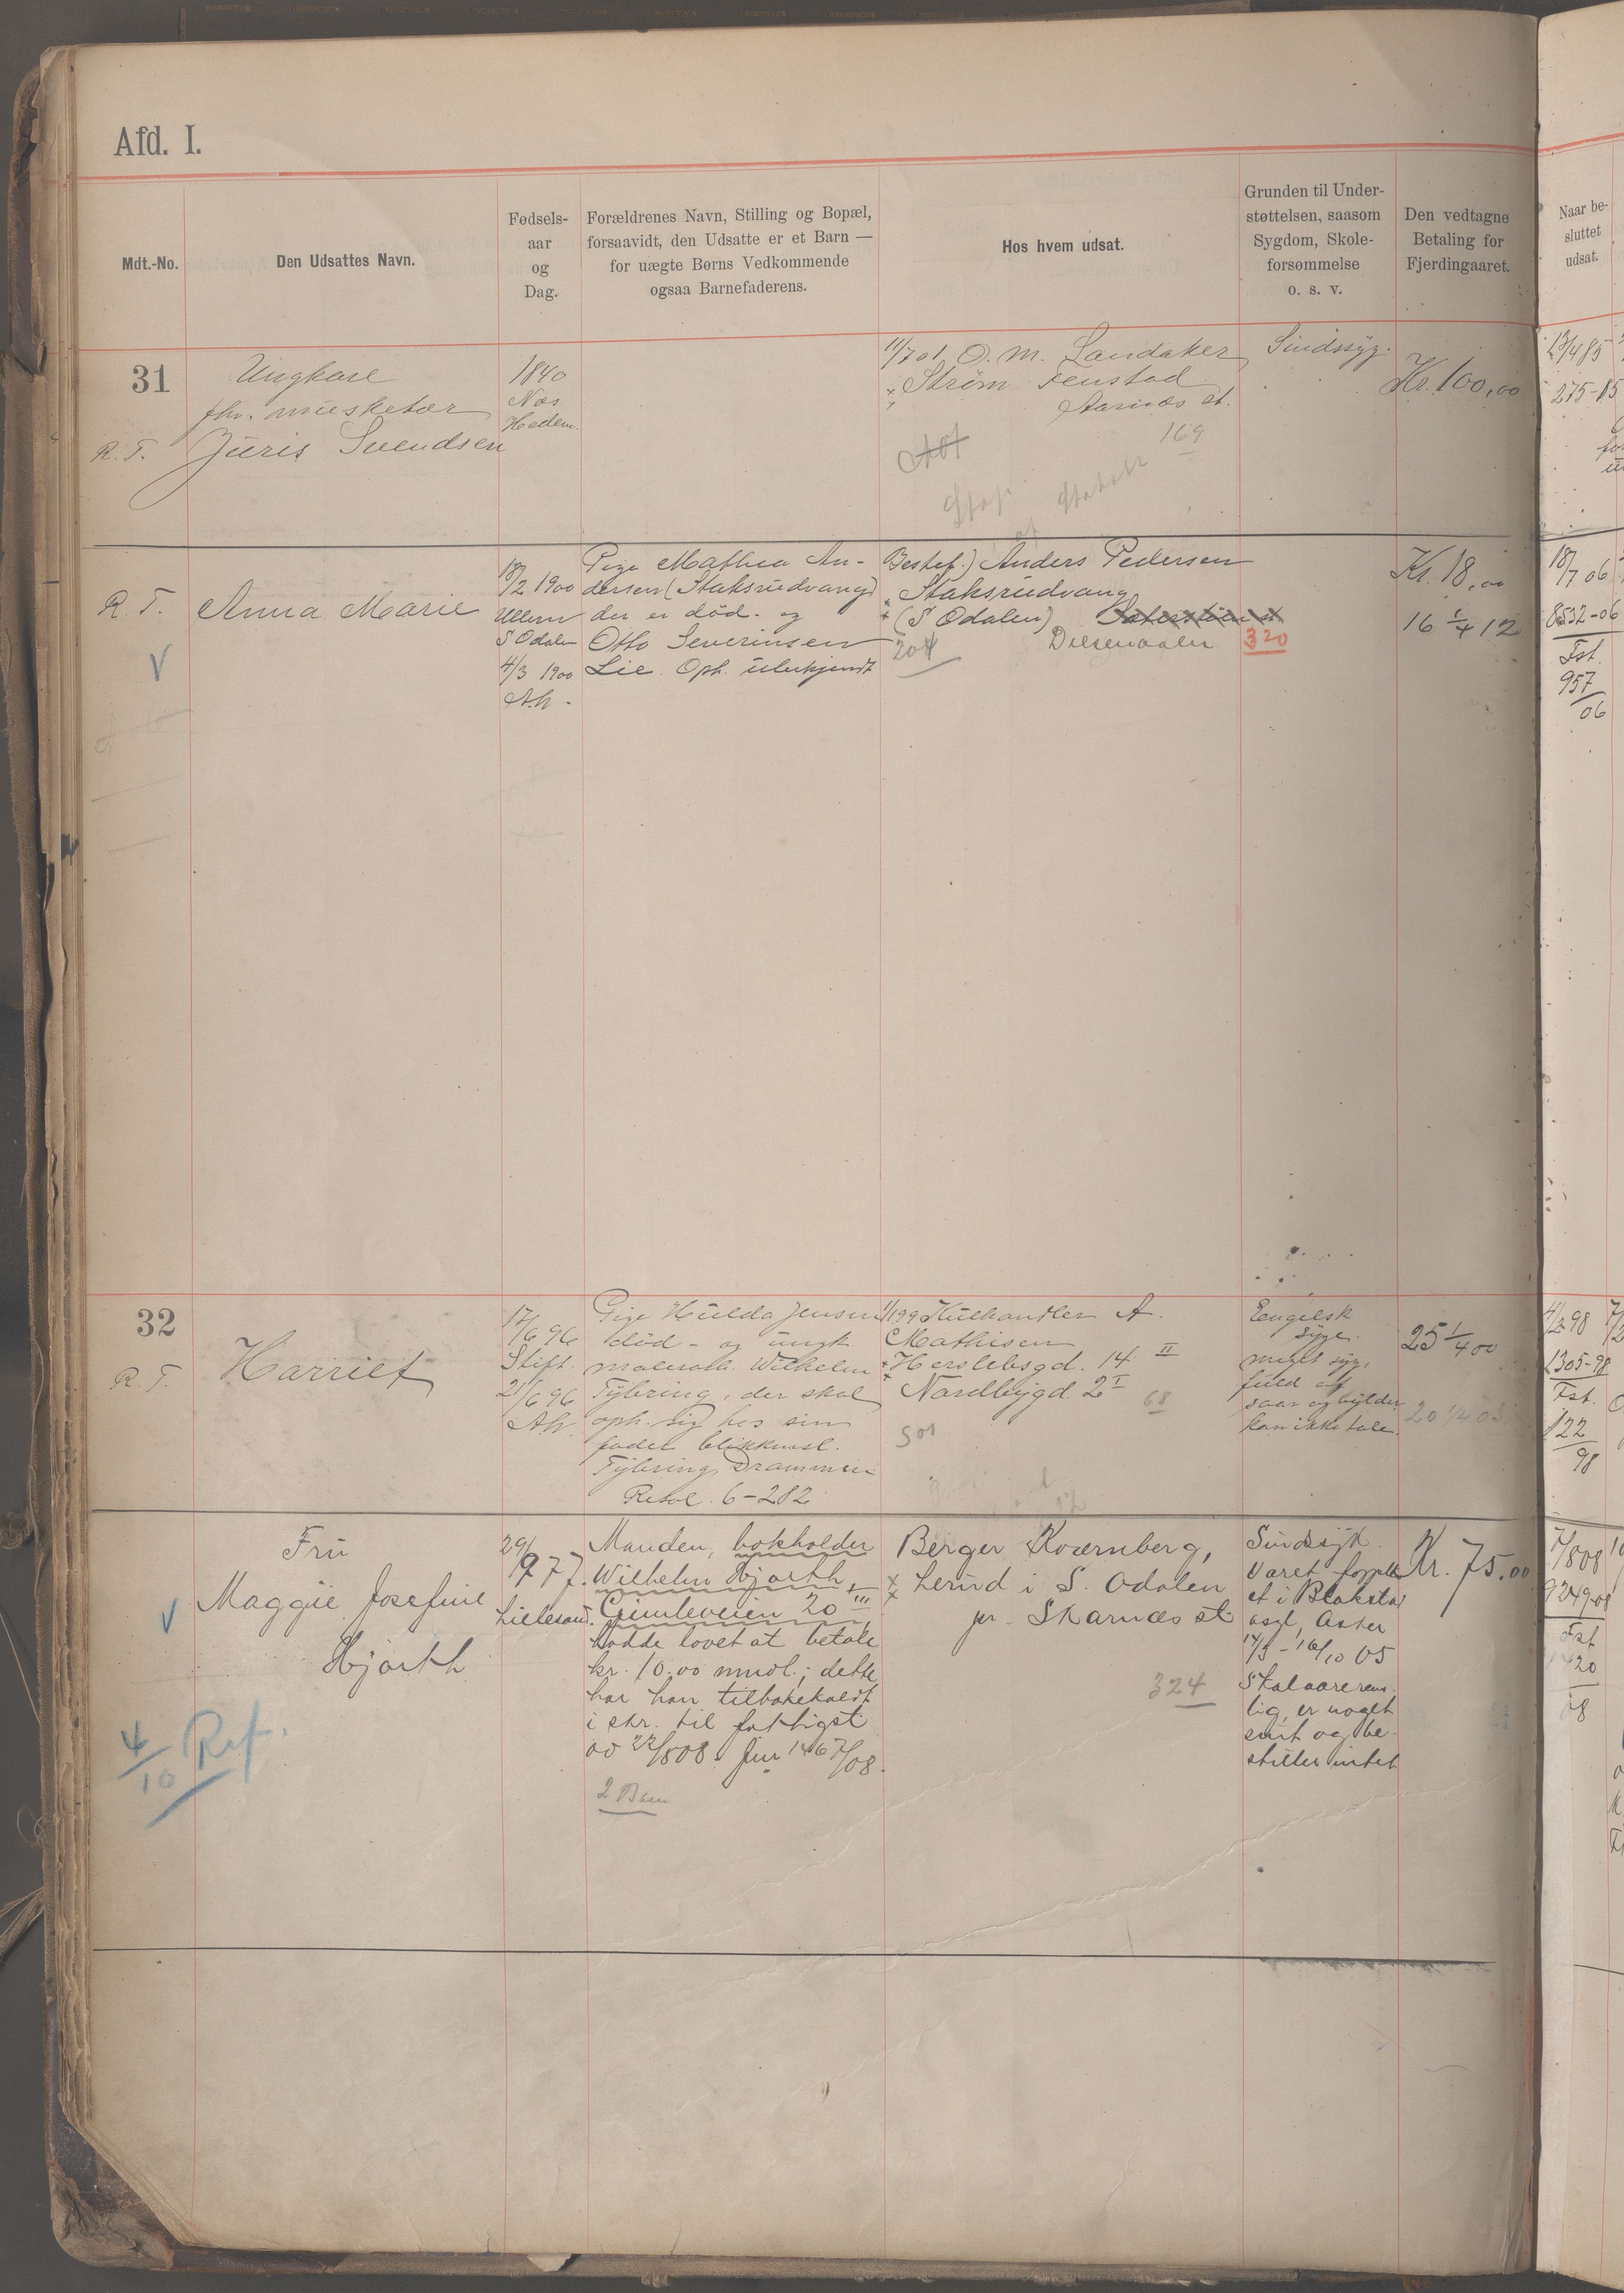 Afd. I.
Mdt.-No.
Den Udsattes Navn.
Fødsels-
aar
og
Dag.
Forældrenes Navn, Stilling og Bopæl,
forsaavidt, den Udsatte er et Barn —
for uægte Børns Vedkommende
ogsaa Barnefaderens.
Hos hvem udsat.
Grunden til Under-
støttelsen, saasom
Sygdom, Skole-
forsømmelse
o. s. v.
Den vedtagne
Betaling for
Fjerdingaaret.
Naar be-
sluttet
udsat.
31
R. T.
Ungkarl
fhv. musketær
Juris Svendsen
1840
Næs
Hedem.
11/7 01 O. M. Sandaker
Strøm Fenstad
Aarnæs st.
169
Sindssyg.
Kr. 100,00
23/4 85
275-85
R. T.
Anna Marie
18/2 1900
Ullern
S Odalen
4/3 1900
A.h.
Pige Mathea An-
dersen (Staksrudvang)
der er död. og
Otto Severinsen
Lie. Oph. ubekjendt
Bestef.) Anders Pedersen
Staksrudvang
(S Odalen)
Disenaaen
204
320
Kr. 18,00
16 1/4 12
18/7 06
8532-06
Fst.
957
06
32
R. T.
Harriet
17/6 96
Stift.
21/6 96
A.h.
Pige Hulda Jensen
död - og ungk.
malersv. Wilhelm
Tybring, der skal
oph. sig hos sin
fader blikkensl.
Tybring, Drammen
Resol. 6-282
1/1 99 Kulhandler A.
Mathisen
Herslebsgd. 14 II
Nordbygd. 2 I
68
501
Engelsk
syge.
meget syg,
fuld af
saar og bylder
kan ikke tale.
25 1/4 00
20 1/4 03
4/2 98
1305-98
Fst.
122
98
Fru
Maggie Josefine
Hjorth
29/9 77.
Lillesand.
Manden, bokholder
Wilhelm Hjorth,
Gimleveien 20 III
hadde lovet at betale
kr. 10.00 mndl.; dette
har han tilbakekaldt
i skr. til fattigst
av 22/8 08. Jnr 1467/08.
2 Barn
Berger Kværnberg,
Lerud i S. Odalen
pr. Skarnæs st
324
Sindssyk.
Været forpleiet
et i Blakstad
asyl, Asker
14/5 - 16/10 05
Skal være rens-
lig, er noget
sint og be-
stiller intet
Kr. 75.00
7/8 08
9249-08
Fst
1420
08
4/10 Ref.